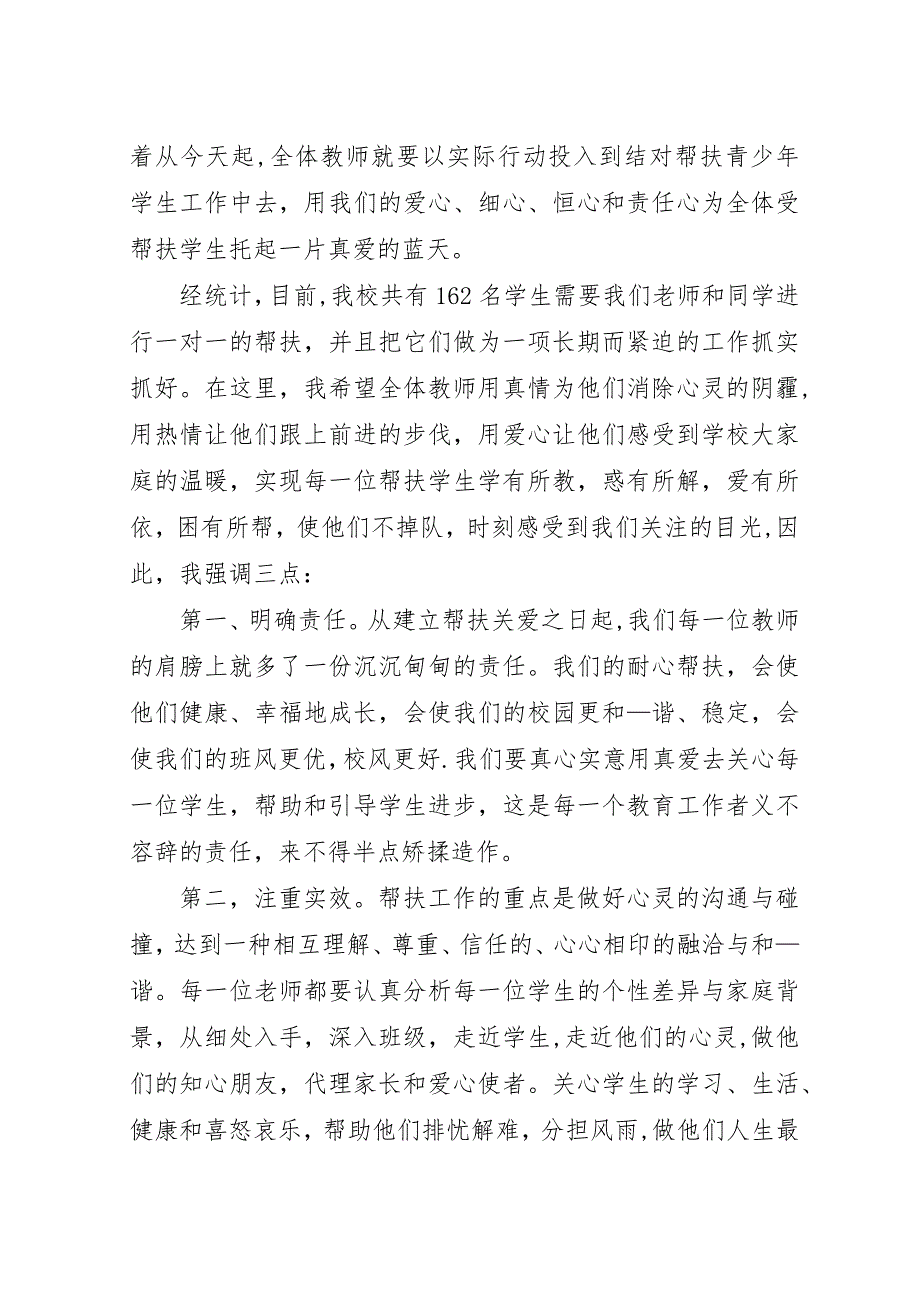 着从今天起,全体教师就要以实际行动投入到结对帮扶青少年
学生工作中去，用我们的爱心、细心、恒心和责任心为全体受
帮扶学生托起一片真爱的蓝天。
经统计，目前,我校共有 162 名学生需要我们老师和同学进
行一对一的帮扶，并且把它们做为一项长期而紧迫的工作抓实
抓好。在这里，我希望全体教师用真情为他们消除心灵的阴霾,
用热情让他们跟上前进的步伐，用爱心让他们感受到学校大家
庭的温暖，实现每一位帮扶学生学有所教，惑有所解，爱有所
依，困有所帮，使他们不掉队，时刻感受到我们关注的目光,因
此，我强调三点：
第一、明确责任。从建立帮扶关爱之日起,我们每一位教师
的肩膀上就多了一份沉沉甸甸的责任。我们的耐心帮扶，会使
他们健康、幸福地成长，会使我们的校园更和—谐、稳定，会
使我们的班风更优，校风更好.我们要真心实意用真爱去关心每
一位学生，帮助和引导学生进步，这是每一个教育工作者义不
容辞的责任，来不得半点矫揉造作。
第二，注重实效。帮扶工作的重点是做好心灵的沟通与碰
撞，达到一种相互理解、尊重、信任的、心心相印的融洽与和—
谐。每一位老师都要认真分析每一位学生的个性差异与家庭背
景，从细处入手，深入班级，走近学生,走近他们的心灵,做他
们的知心朋友，代理家长和爱心使者。关心学生的学习、生活、
健康和喜怒哀乐，帮助他们排忧解难，分担风雨,做他们人生最